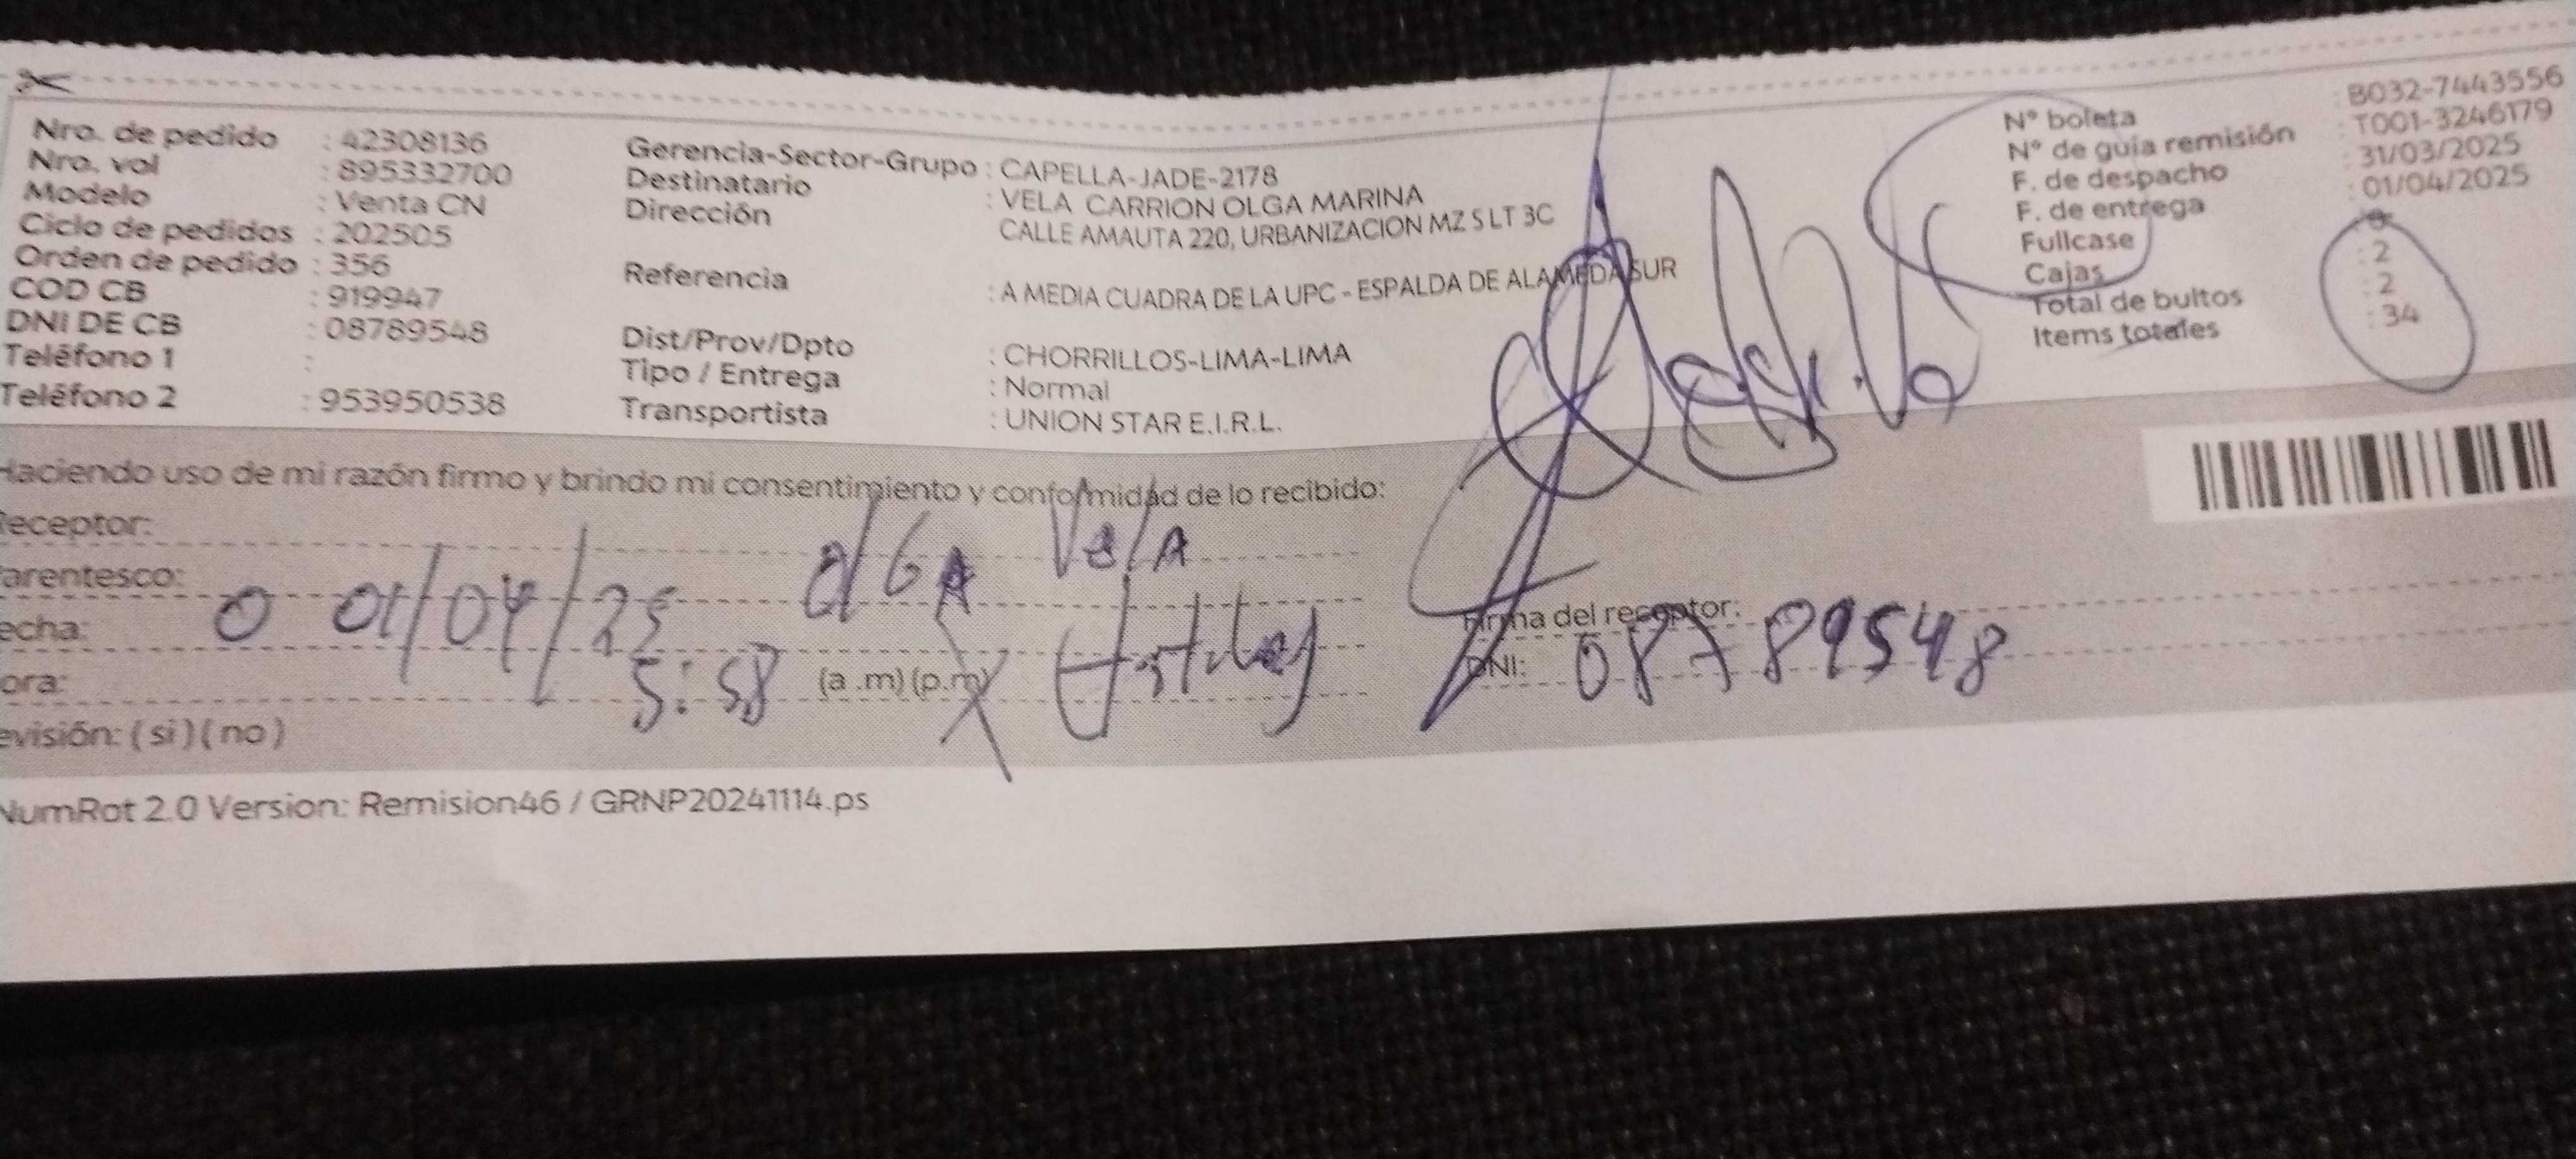 Nro. de pedido : 42308136
Nro. vol : 895332700
Modelo : Venta CN
Ciclo de pedidos : 202505
Orden de pedido : 356
COD CB : 919947
DNI DE CB : 08789548
Teléfono 1 :
Teléfono 2 : 953950538
Gerencia-Sector-Grupo : CAPELLA-JADE-2178
Destinatario : VELA CARRION OLGA MARINA
Dirección CALLE AMAUTA 220, URBANIZACION MZ S LT 3C
Referencia : A MEDIA CUADRA DE LA UPC - ESPALDA DE ALAMEDA SUR
Dist/Prov/Dpto : CHORRILLOS-LIMA-LIMA
Tipo / Entrega : Normal
Transportista : UNION STAR E.I.R.L.
N° boleta : B032-7443556
N° de guia remisión : T001-3246179
F. de despacho : 31/03/2025
F. de entrega : 01/04/2025
Fullcase : 0
Cajas : 2
Total de bultos : 2
Items totales : 34
Haciendo uso de mi razón firmo y brindo mi consentimiento y conformidad de lo recibido:
Receptor:
olGA VelA
arentesco:
echa: 0 01/04/25
ora: 5:58 (a .m) (p.m)
evisión: ( si ) ( no )
Firma del receptor:
DNI: 08789548
NumRot 2.0 Version: Remision46 / GRNP20241114.ps